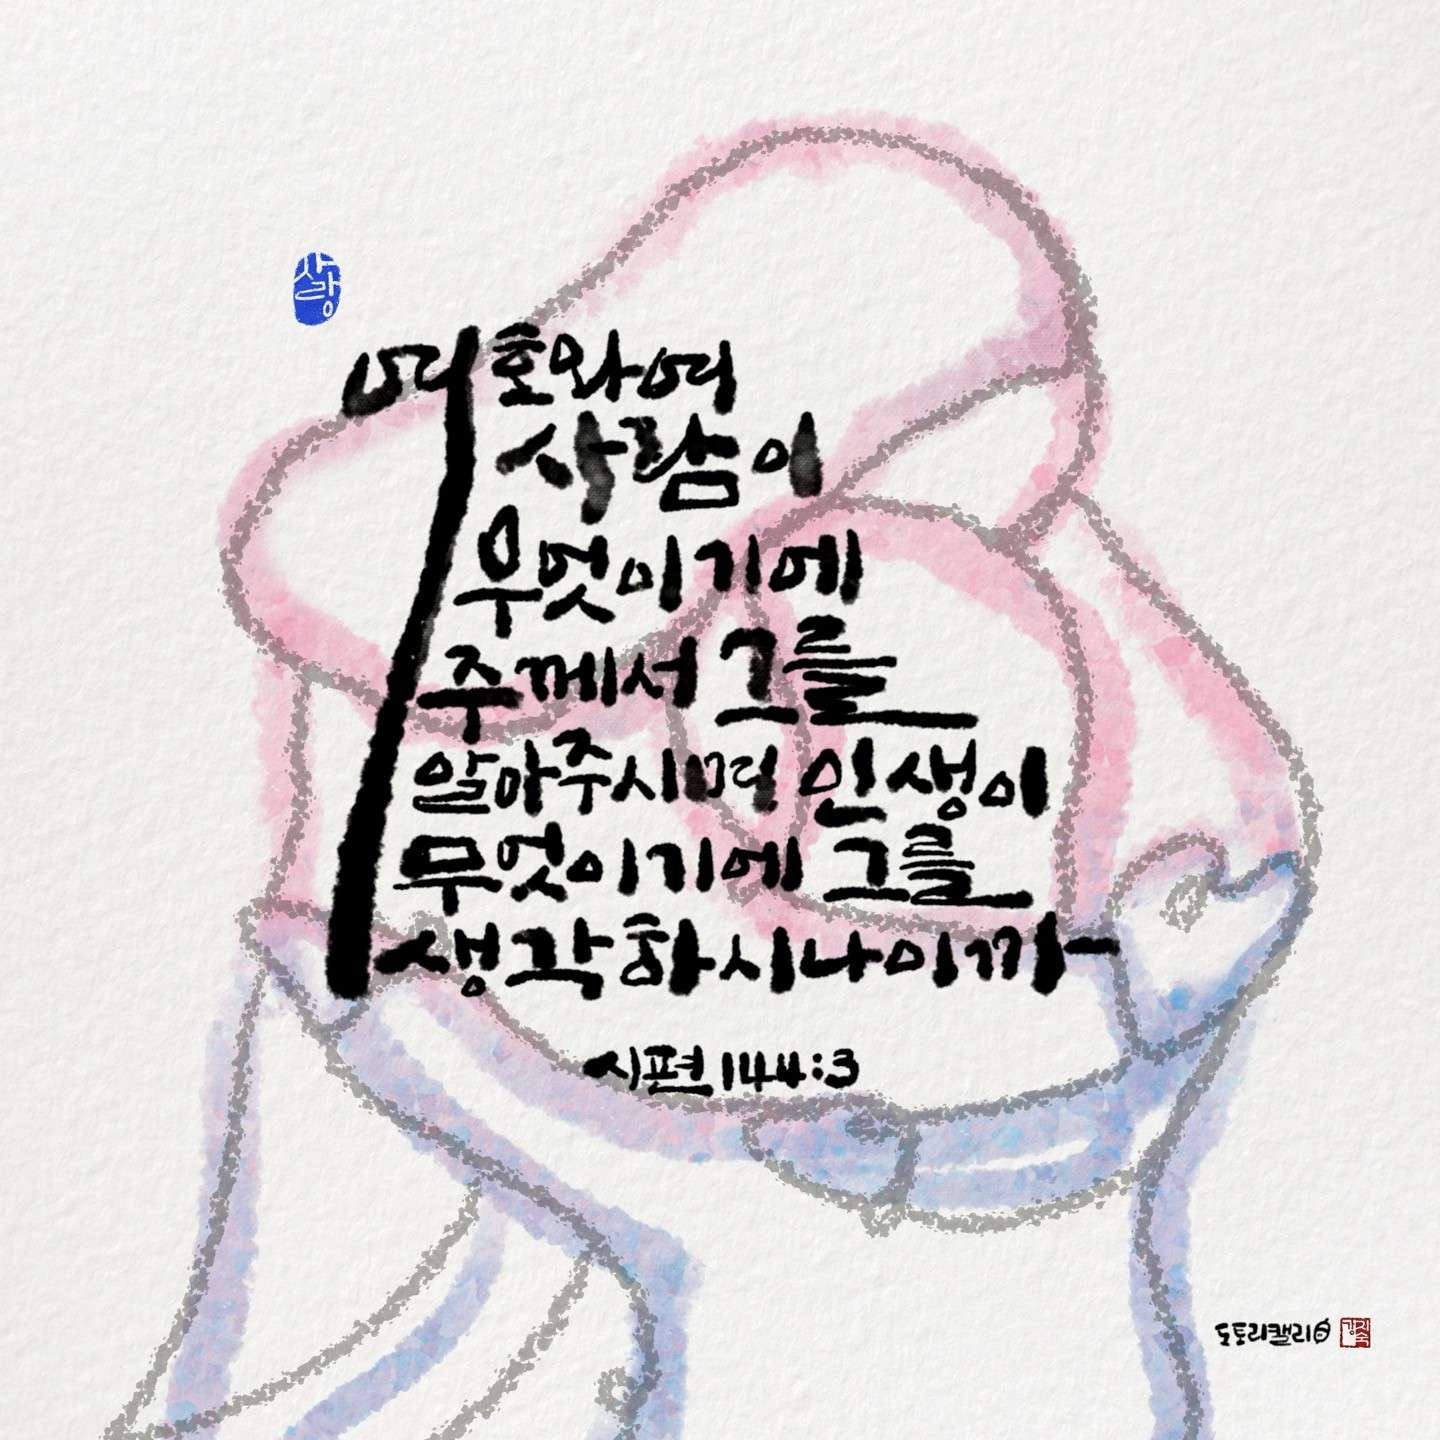 사랑
여호와여
사람이
무엇이기에
주께서 그를
알아주시며 인생이
무엇이기에 그를
생각하시나이까
시편 144:3
도토리캘리